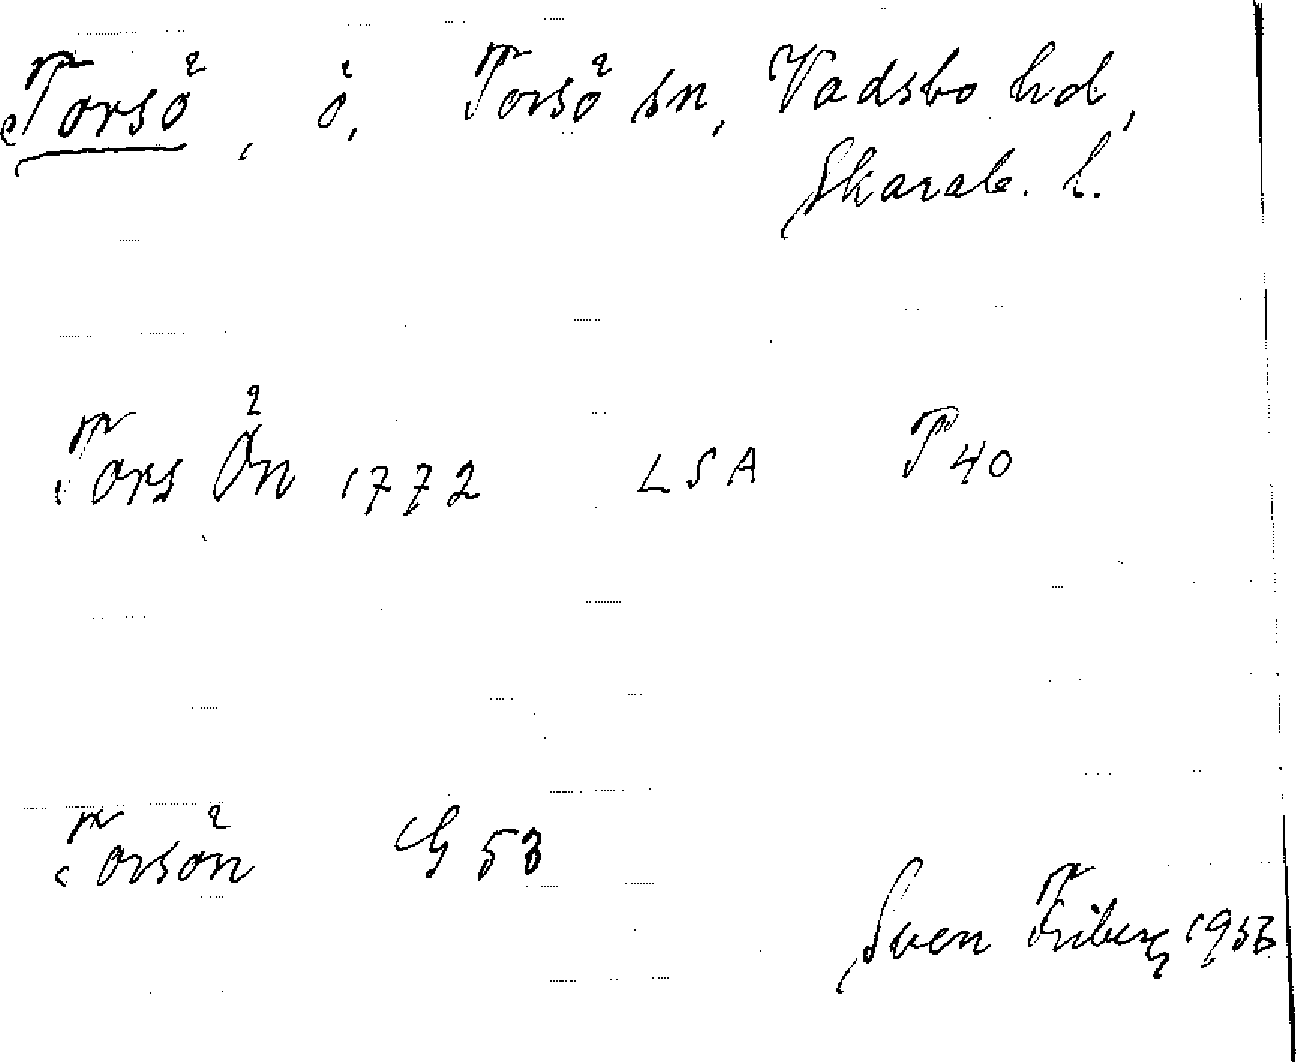 Torsö, ö, Torsö sn, Vadsbo hd,
Skarab. l.
Tors Ön 1772 LSA P 40
Torsön G 53
Sven Friberg 1933